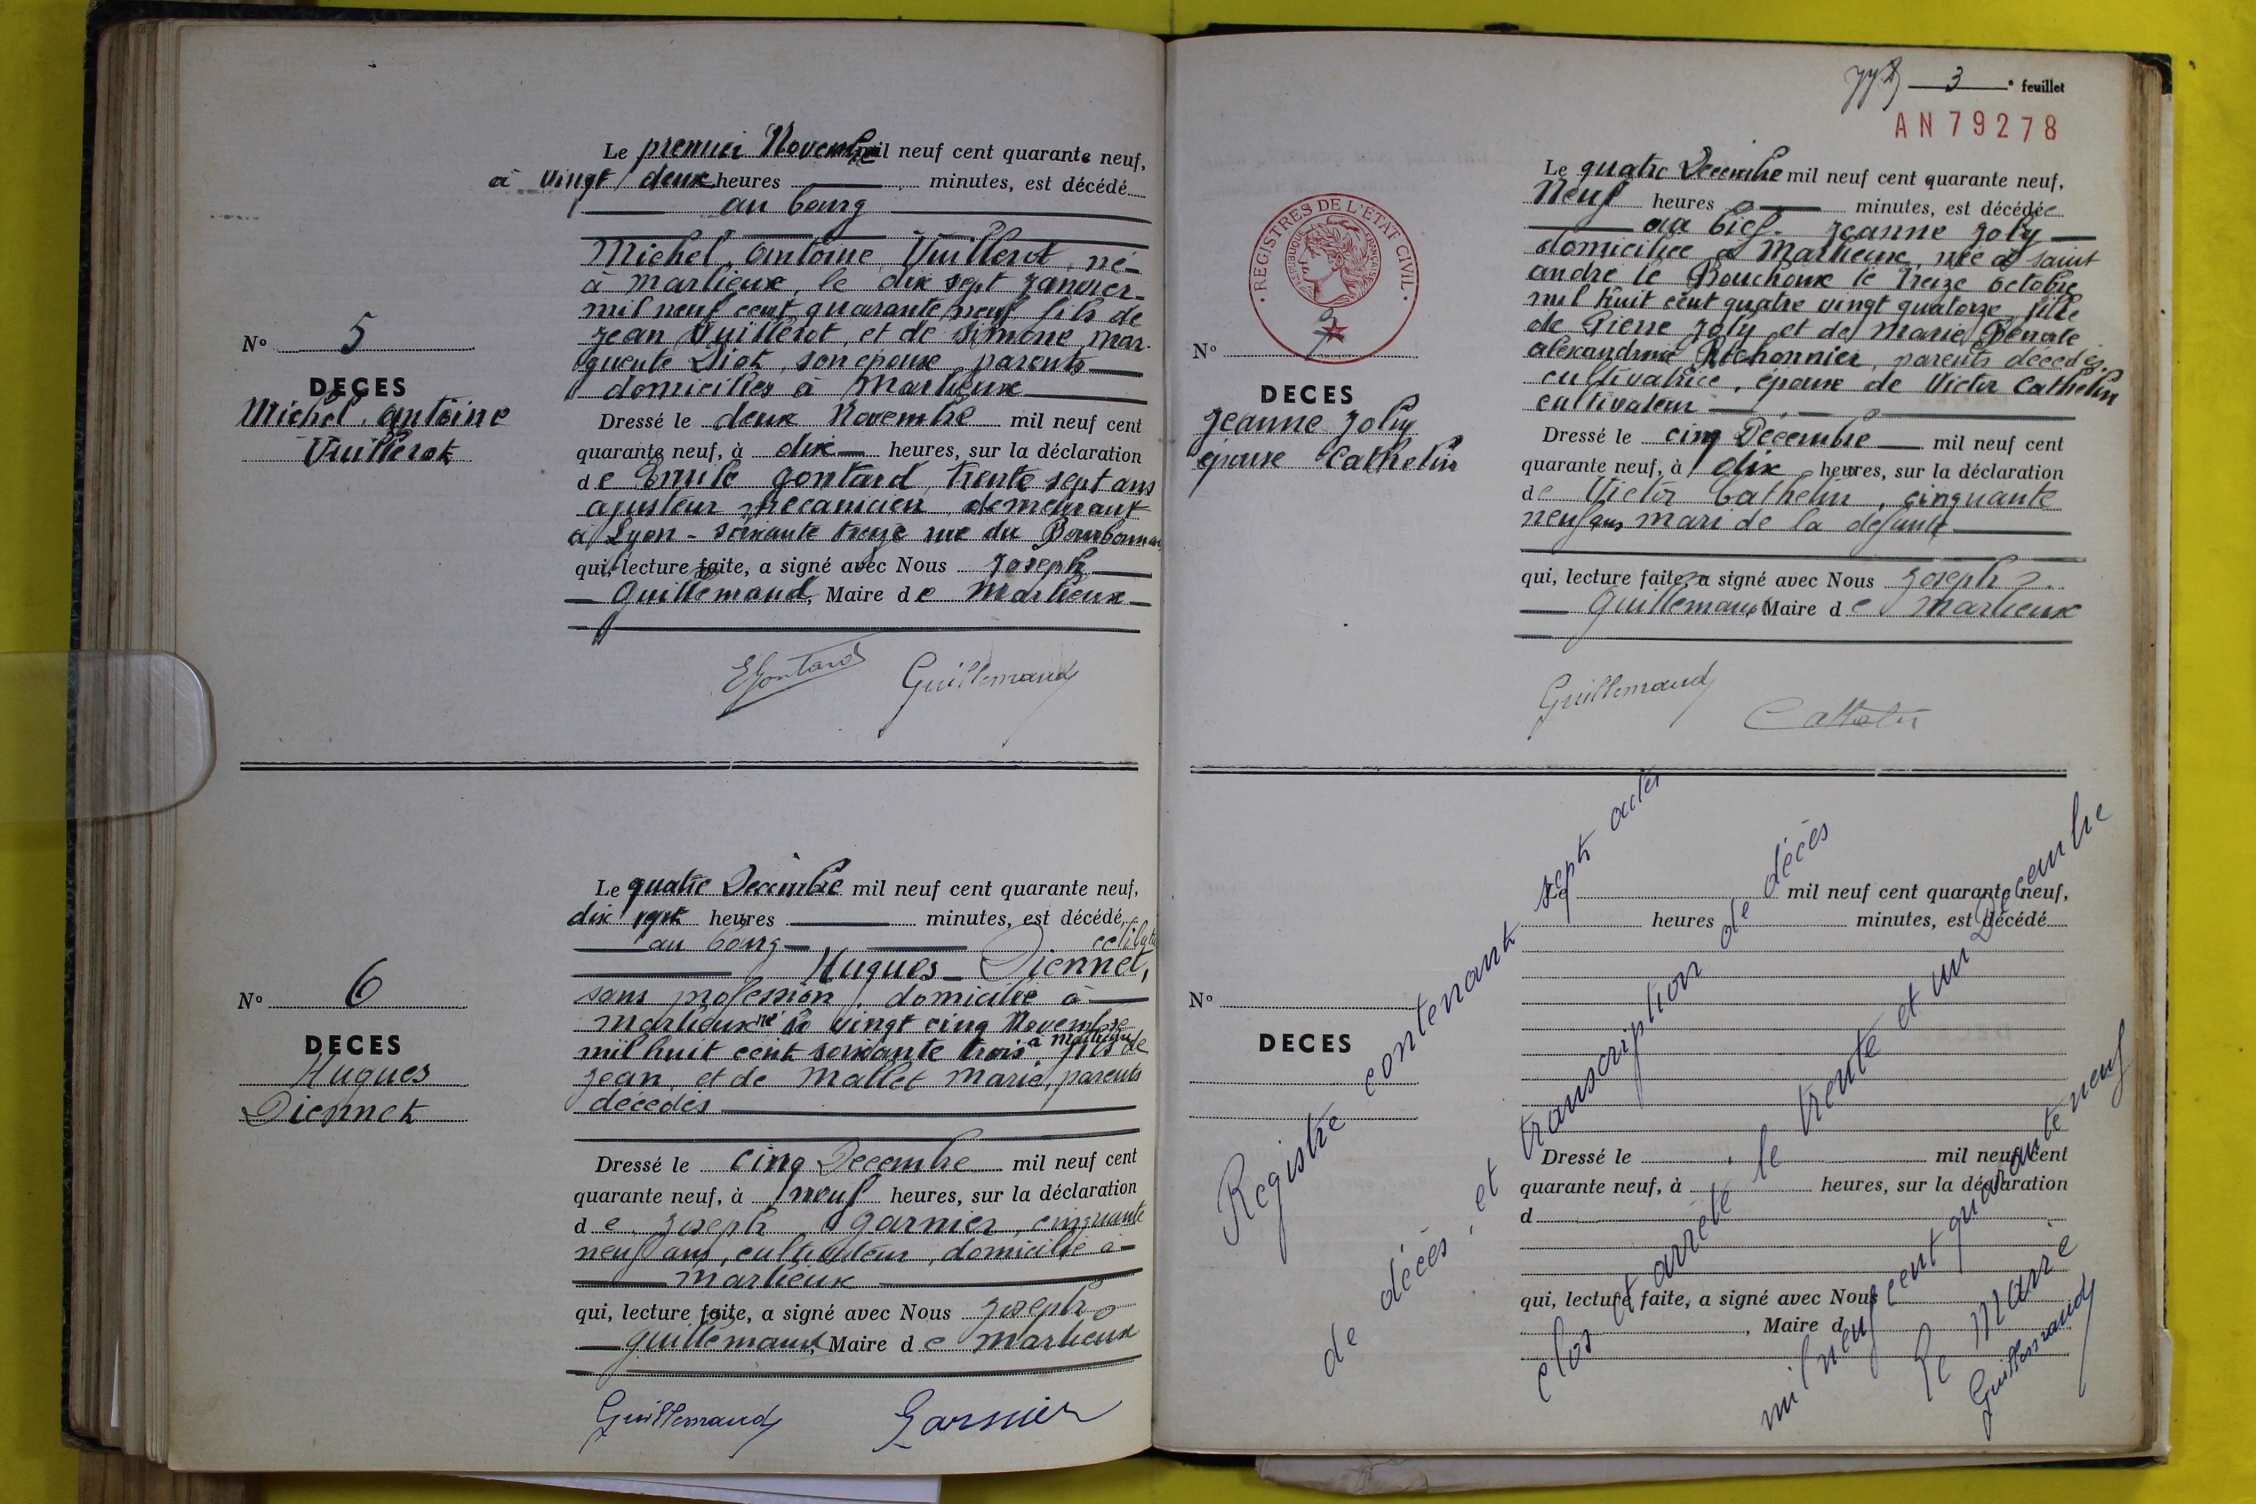 Le premier Novembre mil neuf cent quarante neuf,
à vingt deux heures minutes, est décédé
au bourg
Michel, Antoine Vuillerot, né
à Marlieux, le dix sept Janvier
mil neuf cent quarante neuf fils de
Jean Vuillerot, et de Simone, Mar-
guerite Diot, son epouse parents
domiciliés à Marlieux
N° 5
DECES
Michel, Antoine
Vuillerot
Dressé le deux Novembre mil neuf cent
quarante neuf, à dix heures, sur la déclaration
de Emile Gontard, trente sept ans
ajusteur mécanicien demeurant
à Lyon - soixante treize rue du Bourbonnais
qui, lecture faite, a signé avec Nous Joseph
Guillemaud, Maire de Marlieux
EGontard Guillemaud
Le quatre Decembre mil neuf cent quarante neuf,
dix sept heures minutes, est décédé
au bourg célibataire
Hugues Diennet,
sans profession, domicilié à
Marlieux né le vingt cinq Novembre
mil huit cent soixante trois à Marlieux fils de
Jean, et de Mallet Marie, parents
décédés
N° 6
DECES
Hugues
Diennet
Dressé le cinq Decembre mil neuf cent
quarante neuf, à neuf heures, sur la déclaration
de Joseph Garnier, cinquante
neuf ans, cultivateur, domicilié à
Marlieux
qui, lecture faite, a signé avec Nous Joseph
Guillemaud, Maire de Marlieux
Guillemaud Garnier
3e feuillet
AN79278
Le quatre Decembre mil neuf cent quarante neuf,
Neuf heures minutes, est décédée
au bief. Jeanne Joly
domiciliée à Marlieux, née à Saint
André le Bouchoux le treize octobre
mil huit cent quatre vingt quatorze, fille
de Pierre Joly et de Marie
Alexandrine parents décédés.
cultivatrice, épouse de Victor Cathelin
cultivateur
REGISTRES DE L'ETAT CIVIL
REPUBLIQUE FRANÇAISE
N° 7
DECES
Jeanne Joly
épouse Cathelin
Dressé le cinq Décembre mil neuf cent
quarante neuf, à dix heures, sur la déclaration
de Victor Cathelin, cinquante
neuf ans mari de la défunte
qui, lecture faite, a signé avec Nous Joseph
Guillemaud, Maire de Marlieux
Guillemaud
Cathelin
Le mil neuf cent quarante neuf,
heures minutes, est décédé
N°
DECES
Dressé le mil neuf cent
quarante neuf, à heures, sur la déclaration
d
qui, lecture faite, a signé avec Nous
, Maire d
Registre contenant sept actes
de décès, et transcription de décès
clos et arrêté le trente et un Décembre
mil neuf cent quarante neuf
Le Maire
Guillemaud